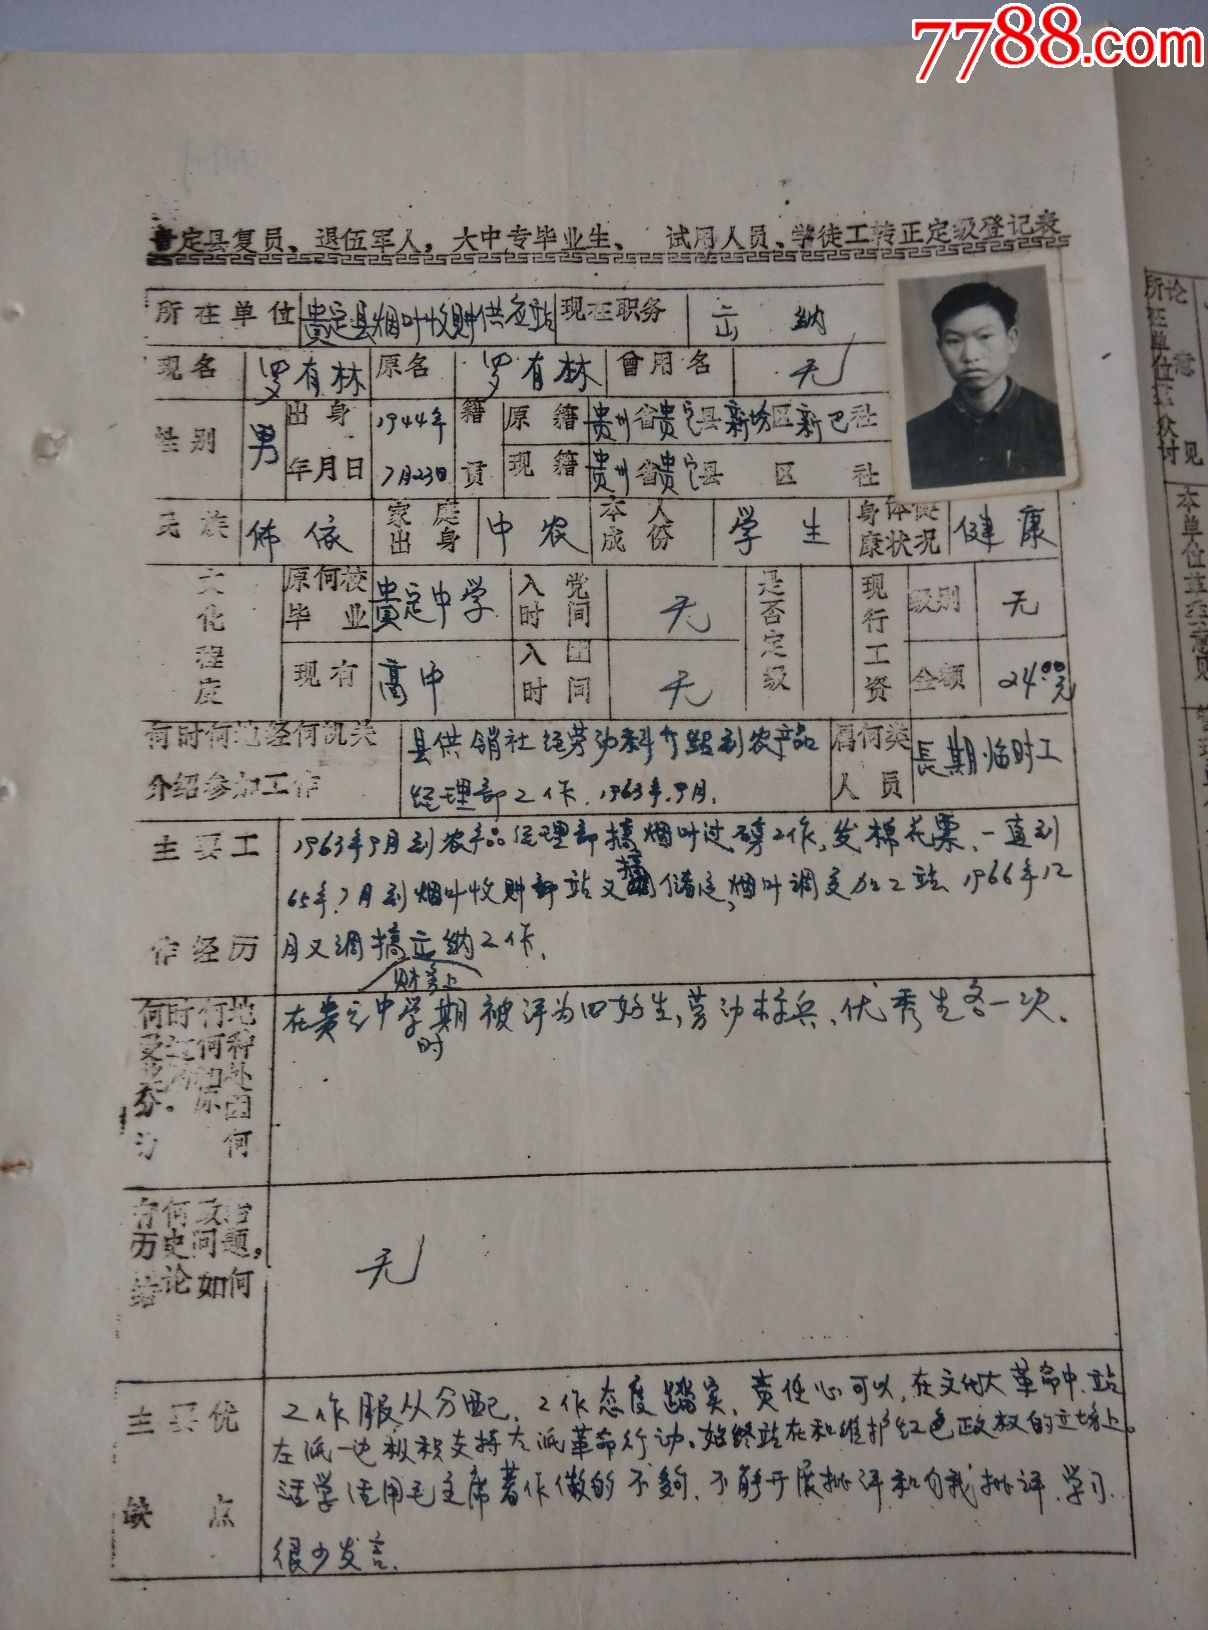 7788.com
贵定县复员、退伍军人，大中专毕业生、 试用人员、学徒工转正定级登记表
所在单位 贵定县烟叶收购供应站 现在职务 出纳
现名 罗有林 原名 罗有林 曾用名 无
性别 男 出身年月日 1944年7月23日 籍贯 原籍 贵州省贵定县新场区新巴社
现籍 贵州省贵定县 区 社
民族 佈依 家庭出身 中农 本人成份 学生 身体健康状况 健康
文化程度 原何校毕业 贵定中学 入党时间 无 是否定级 现行工资 级别 无
现有 高中 入团时间 无 金额 24.00元
何时何地经何机关 县供销社经劳动科介绍到农产品 属何类 長期临时工
介绍参加工作 经理部工作.1963年.9月. 人员
主要工 1963年9月到农产品经理部搞烟叶过磅工作,发棉花票.一直到
65年7月到烟叶收购站又搞 烟叶调 加工站.1966年12
作经历 月又调搞出纳工作.
财务上
何时何地受过何种奖励和处分.原因为何 在贵定中学期被评为四好生,劳动标兵、优秀生各一次.
时
有何政治历史问题，结论如何 无
主要优 工作服从分配.工作态度踏实.责任心可以.在文化大革命中.站
左派一边积极支持左派革命行动.始终站在和维护红色政权的立场上。
活学活用毛主席著作做的不夠.不能开展批评和自我批评.学习
缺点 很少发言.
所在单位群众讨论意见
本单位革委意见